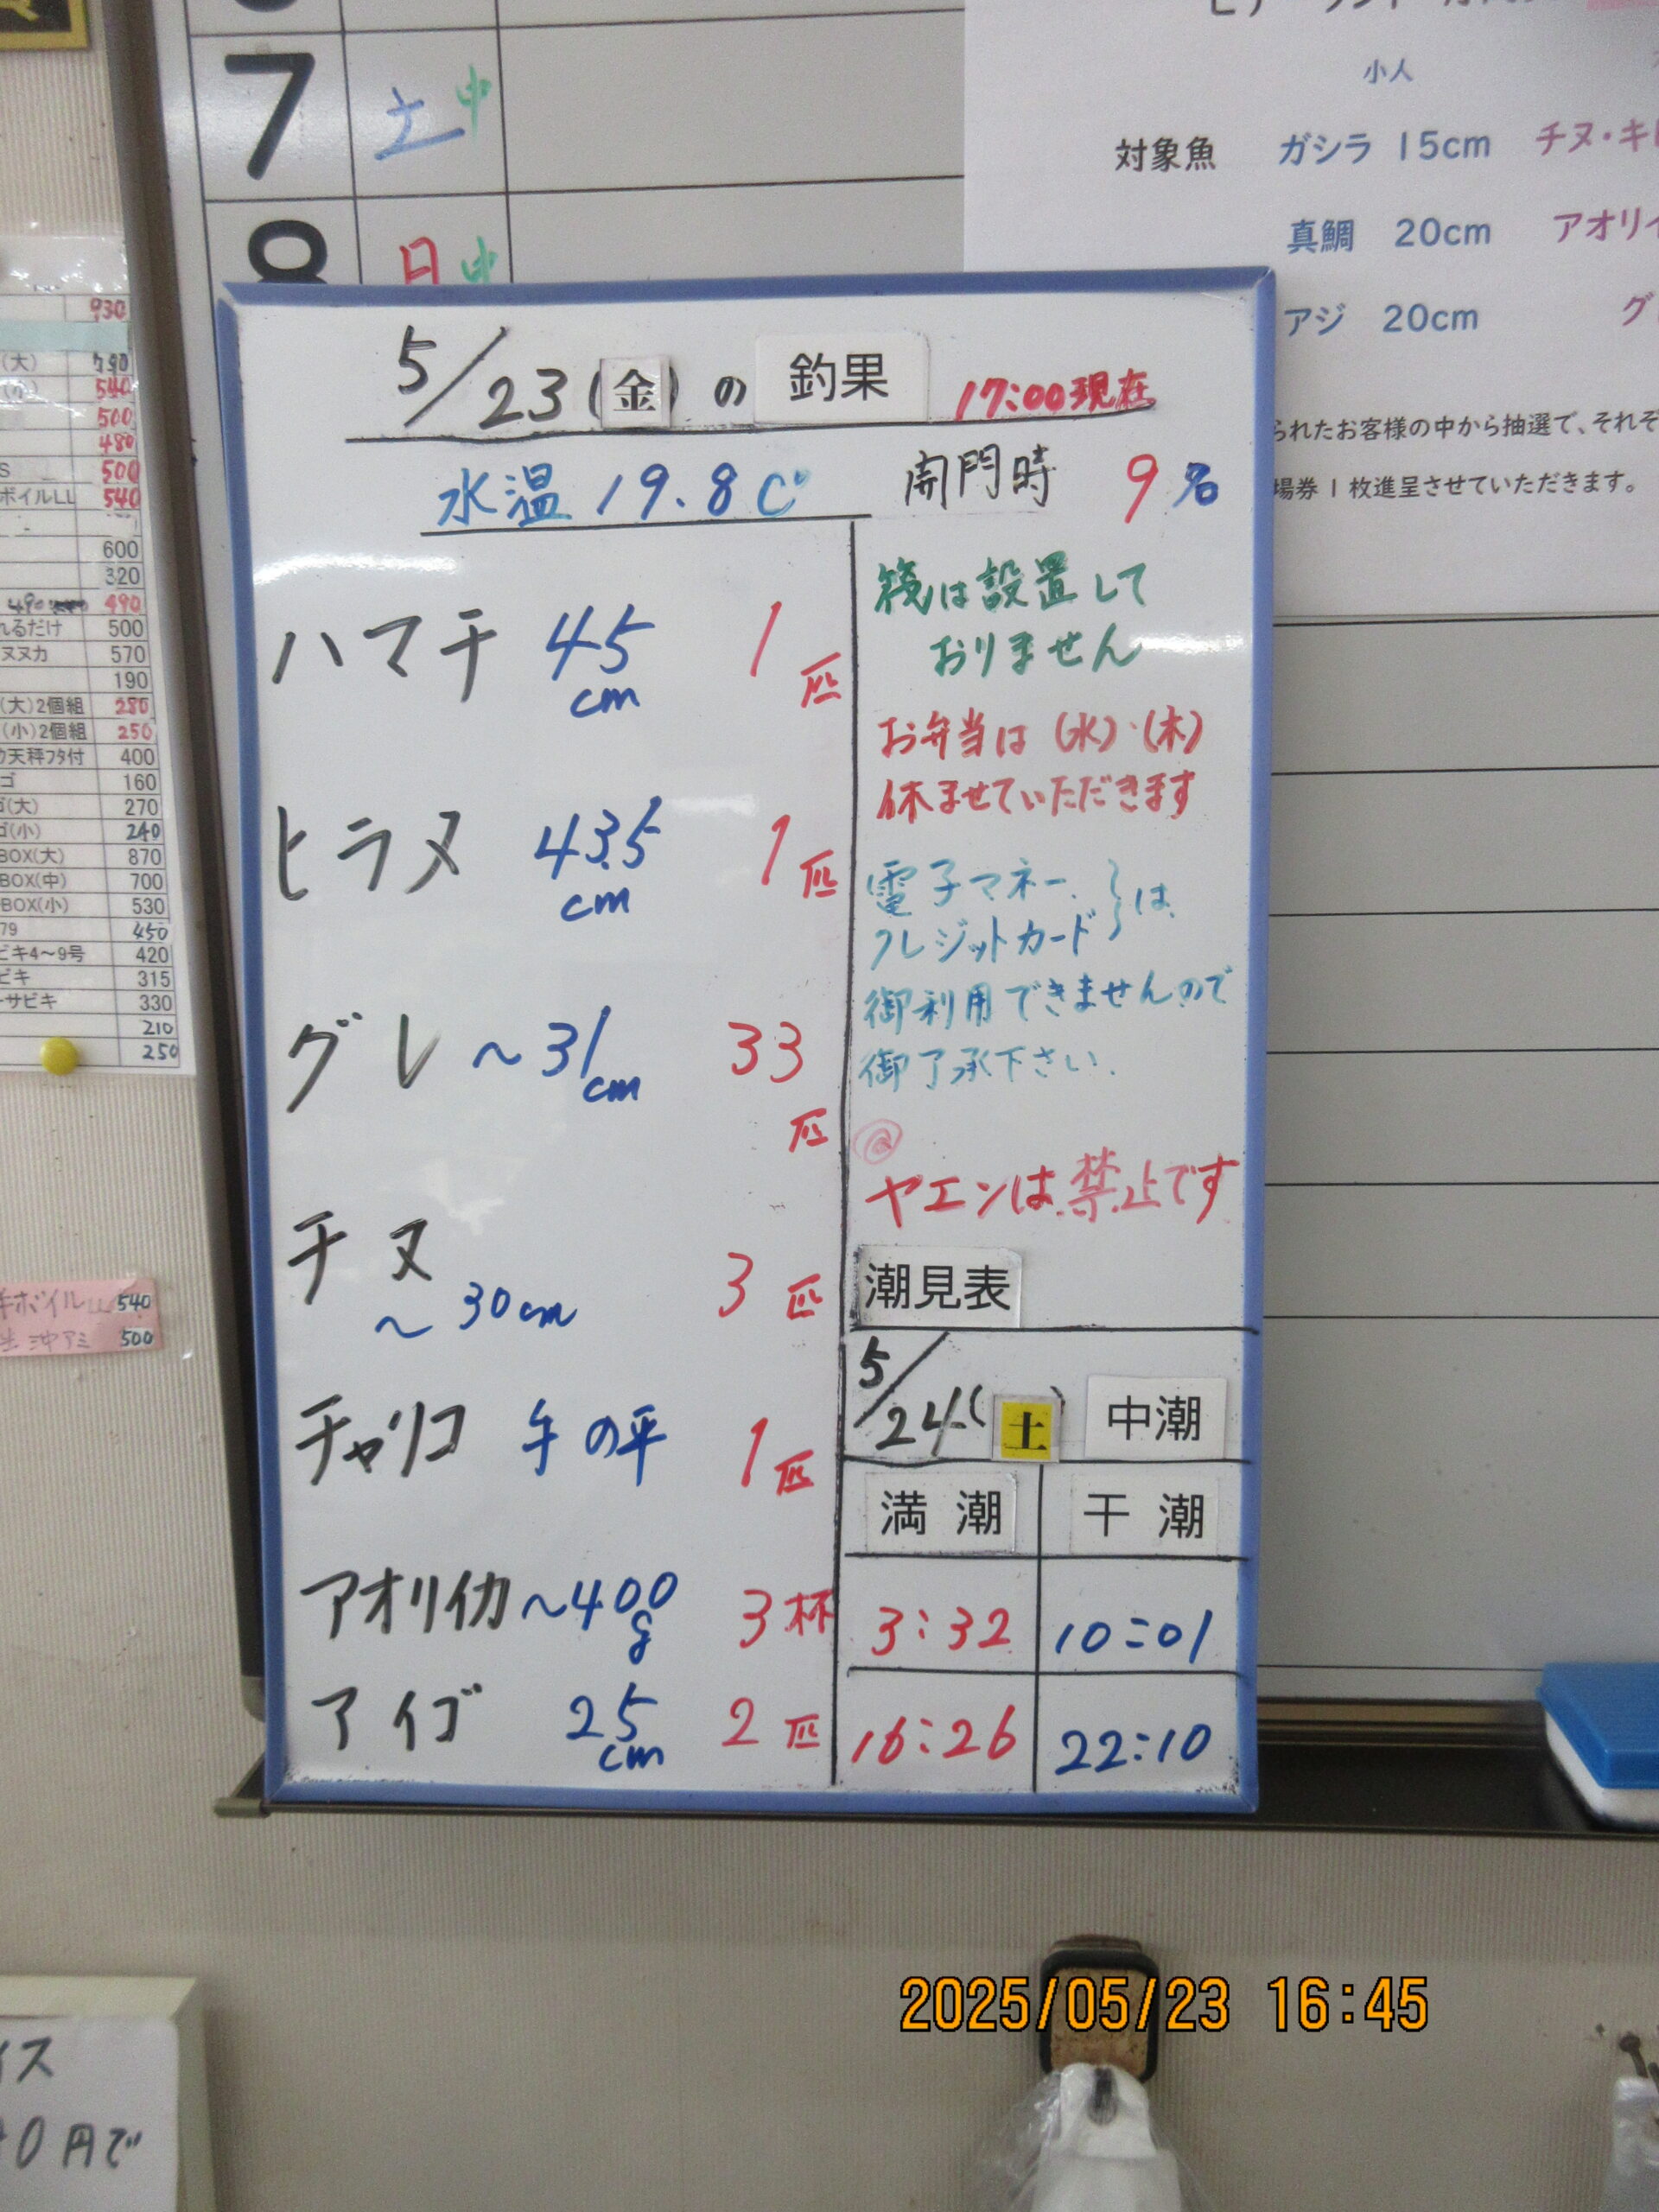 7 土 中
8 日 中
小人
対象魚 ガシラ 15cm チヌ・キ
真鯛 20cm アオリイ
アジ 20cm グ
られたお客様の中から抽選で、それぞ
場券1枚進呈させていただきます。
5/23(金)の釣果 17:00現在
水温 19.8C° 開門時 9名
ハマチ 45cm 1匹
ヒラメ 43.5cm 1匹
グレ ~31cm 33匹
チヌ ~30cm 3匹
チャリコ 手の平 1匹
アオリイカ ~400g 3杯
アイゴ 25cm 2匹
筏は設置して
おりません
お弁当は(水)・(木)
休ませていただきます
電子マネー、
クレジットカード}は、
御利用できませんので
御了承下さい。
@
ヤエンは禁止です
潮見表
5/24(土) 中潮
満潮 干潮
3:32 10:01
16:26 22:10
930
(大) 790
540
500
480
S 500
ボイルLL 540
600
320
490
れるだけ 500
ヌヌカ 570
190
(大)2個組 280
(小)2個組 250
天秤フタ付 400
ゴ 160
ゴ(大) 270
ゴ(小) 240
BOX(大) 870
BOX(中) 700
BOX(小) 530
79 450
ビキ4~9号 420
ビキ 315
ーサビキ 330
210
250
キボイルLL 540
生沖アミ 500
イス
0円で
2025/05/23 16:45